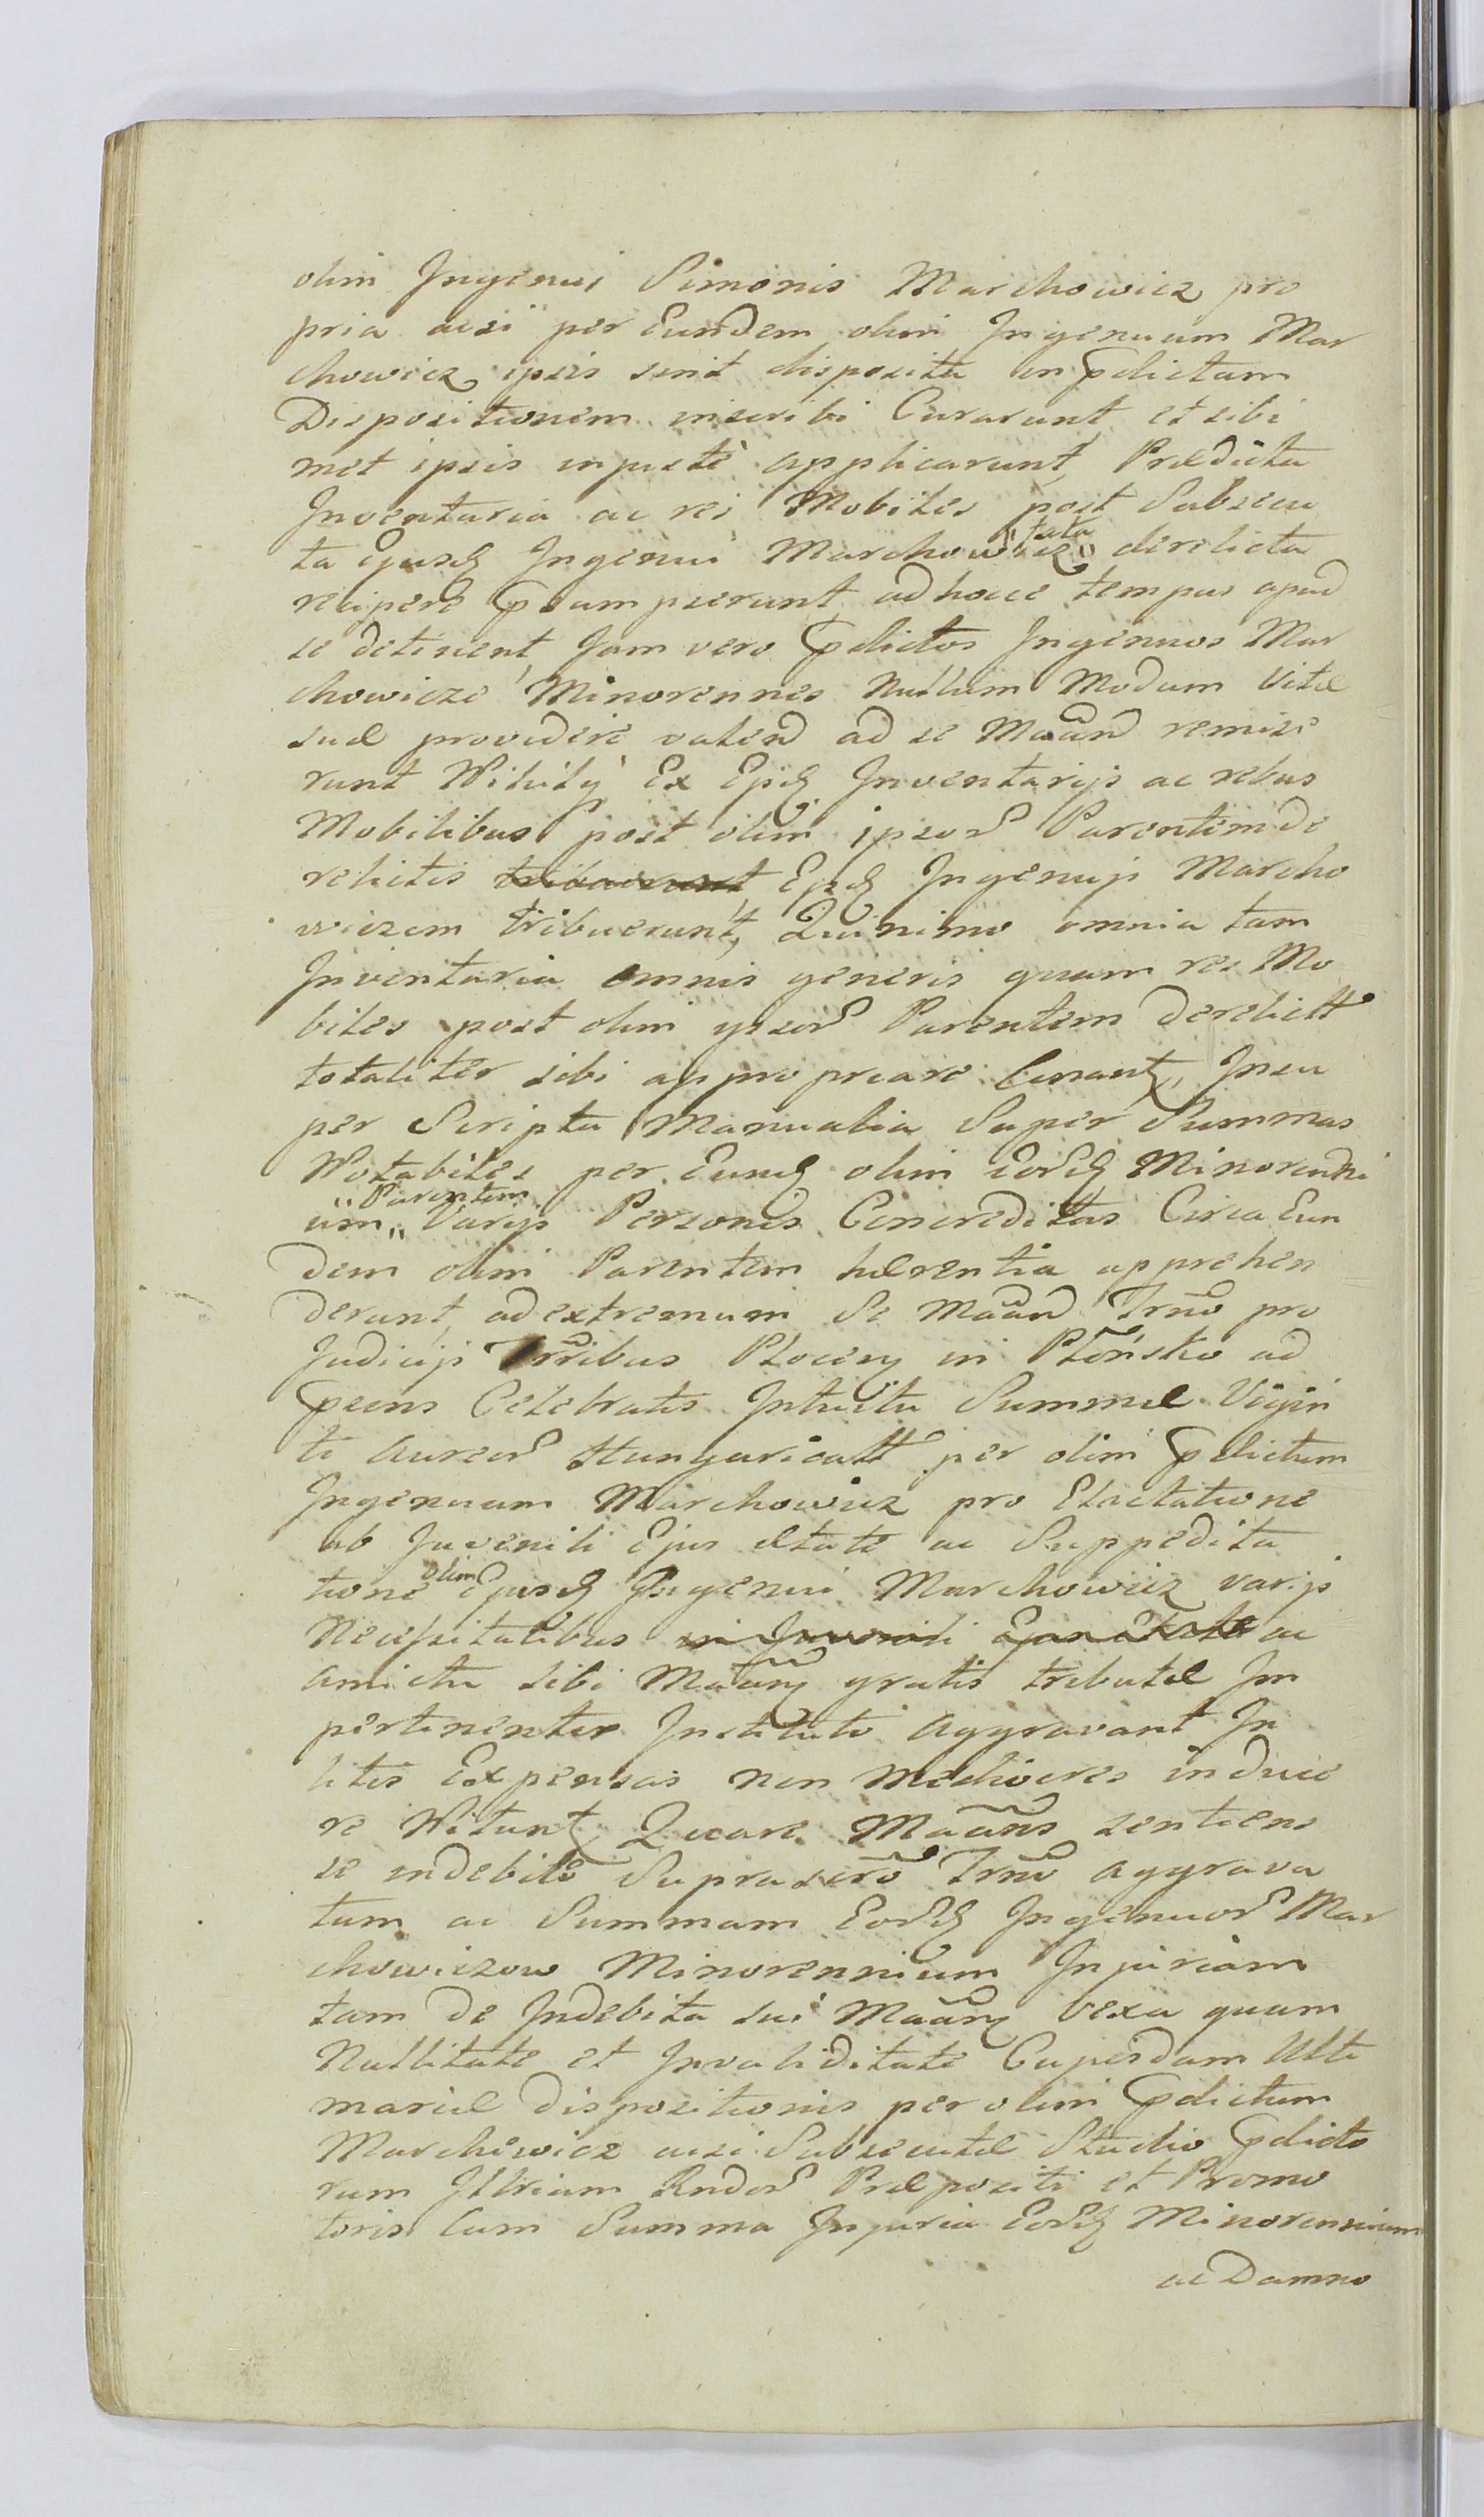 olim Ingenui Simonis Marchowicz pro
pria acsi per Eundem olim Ingenuum Mar
chowicz ipsis sint disposita in pdictam
Dispositionem inscribi Curarunt et sibi
met ipsis injustè applicarunt, Prædicta
Inventaria ac res Mobiles post Subsecu
ta ejusd Ingenui Marchowicz "fata" derelicta
recipere psumpserunt, ad hocce tempus apud
se detinent, Jam vero pdictos Ingenuos Mar
chowicze Minorennes Nullum Modum Vitæ
suæ providere valend ad se Maand remise
runt Nihilq Ex Ejsd Inventarijs ac rebus
Mobilibus post olim ipsor Parentem de
relictis tribuerunt Ejsd Ingenujs Marcho
wiczom tribuerunt, Quinimo omnia tam
Inventaria omnis generis quam res Mo
biles post olim ipsor Parentem derelictt
totaliter sibi appropriare Conant, Insu
per Scripta Manualia Super Summas
Notabiles per Eund olim Eord Minorenni
um "Parentem" Varijs Personis Concreditas Circa Eun
dem olim Parentem hærentia apprehen
derunt, ad extremum Se Maand Trno pro
Judicijs Trribus Plocen in Płońsko ad
pcens Celebratis Intuitu Summæ Vigin
ti Aureor Hungaricalt per olim pdictum
Ingenuum Marchowicz pro Elactatione
ab Juvenili Ejus ætate ac Suppedita
tione olim Ejusd Ingenui Marchowicz varijs
Necessitatibus in Juvenili Ejus ætate ac
amictu sibi Maan gratis tributæ Im
pertinenter Instituto Aggravant In
litis Expensas non mediocres induce
re Nitunt, Quare Maans sentiens
se indebitè Suprascro Trno aggrava
tum ac Summam Eord Ingenuor Mar
chowiczow Minorennium Injuriam
tam de Indebita sui Maan vexa quam
Nullitate et Invaliditate Cujusdam Ulti
mariæ Dispositionis per olim pdictum
Marchowicz acsi Subsecutæ Studio pdicto
rum Illrium Rndor Præpositi et Promo
toris Cum Summa Injuria Eord Minorennium
ac Damno